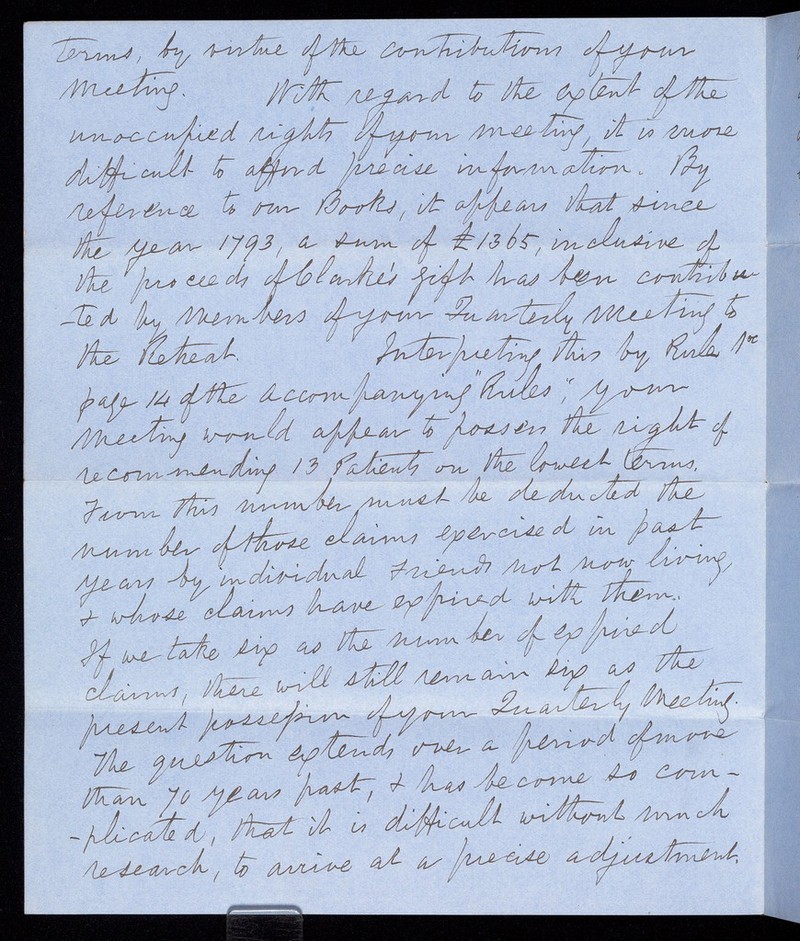 terms, by virtue of the contributions of your
Meeting. With regard to the extent of the
unoccupied rights of your meeting, it is more
difficult to afford precise information. By
reference to our Books, it appears that since
the year 1793, a sum of £1365, inclusive of
the proceeds of Clarke's gift has been contribu
-ted by Members of your Quarterly Meeting to
the Retreat. Interpreting this by Rule
page 14 of the accompanying "Rules", your
Meeting would appear to possess the right of
recommending 13 Patients on the lowest terms.
From this number must be deducted the
number of those claims exercised in past
years by individual Friends not now living,
& whose claims have expired with them.
If we take six as the number of expired
claims, there will still remain six as the
present possession of your Quarterly Meeting.
The question extends over a period of more
than 70 years past, & has become so com-
-plicated, that it is difficult without much
research, to arrive at a precise adjustment.